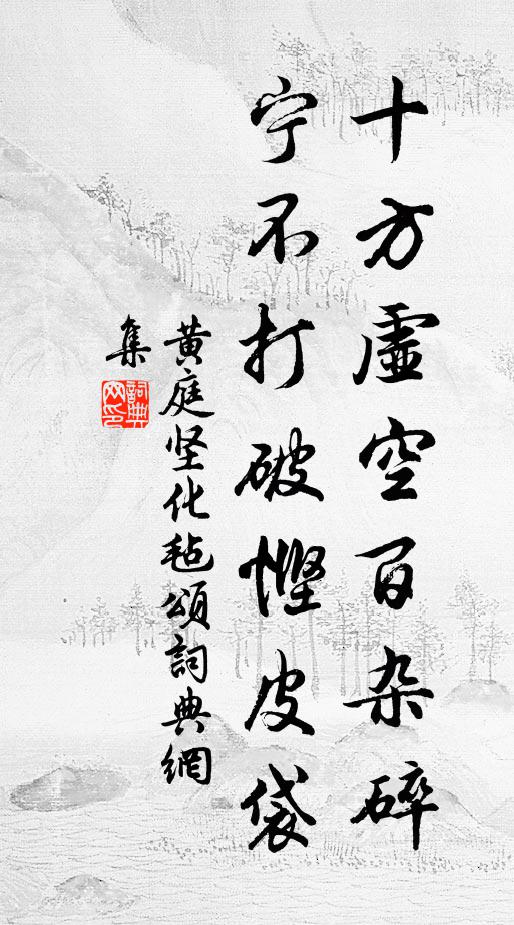 十方虚空百杂碎
宁不打破悭皮袋
黄庭坚化毡颂詞典網
集
詞典网印